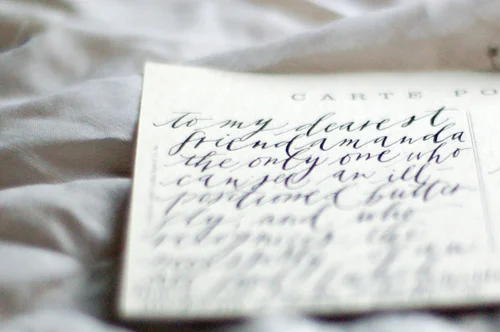 CARTE PO
to my dearest
friend amanda
the only one who
can see an ill-
positioned butter
fly, and who
recognizes the